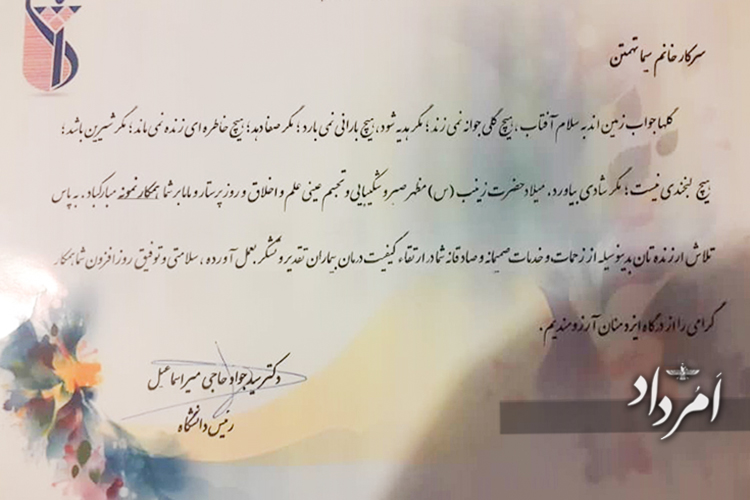 سرکار خانم سیما تهمتن
گلها جواب زمین اند به سلام آفتاب، هیچ گلی جوانه نمی زند؛ مگر هدیه شود، هیچ بارانی نمی بارد؛ مگر صفا دهد؛ هیچ خاطره ای زنده نمی ماند؛ مگر شیرین باشد؛
هیچ لبخندی نیست؛ مگر شادی بیاورد. میلاد حضرت زینب (س) مظهر صبر و شکیبایی و تجسم عینی علم و اخلاق و روز پرستار و ماما بر شما همکار نمونه مبارکباد. به پاس
تلاش ارزنده تان بدینوسیله از زحمات و خدمات صمیمانه و صادقانه شما در ارتقاء کیفیت درمان بیماران تقدیر و تشکر بعمل آورده، سلامتی و توفیق روز افزون شما همکار
گرامی را از درگاه ایزد منان آرزومندیم.
دکتر سید جواد حاجی میر اسماعیل
رئیس دانشگاه
اَمُرداد